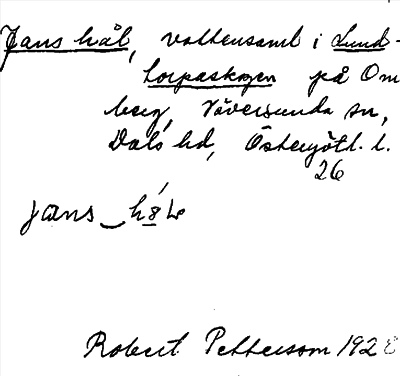 Jans hål, vattensaml i Lund-
torpaskogen på Om
berg, Väversunda sn,
Dals hd, Östergötl. l.
26
jans‿hó̱ɫ
Robert Pettersson 1928